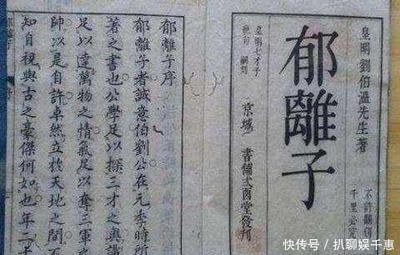 皇明劉伯溫先生著
郁離子
不許翻刻
千里必究
皇明七才子
絶句 嗣刻
京城 書舖弐酉堂發刊
郁離子序
郁離子者誠意伯劉公在元季時所
著之書也公學足以探三才之奧識
足以達萬物之情氣足以奪三軍
帥以是自許卓然立於天地之間
知自視與古之豪傑何如也年
快传号/扒聊娱千惠